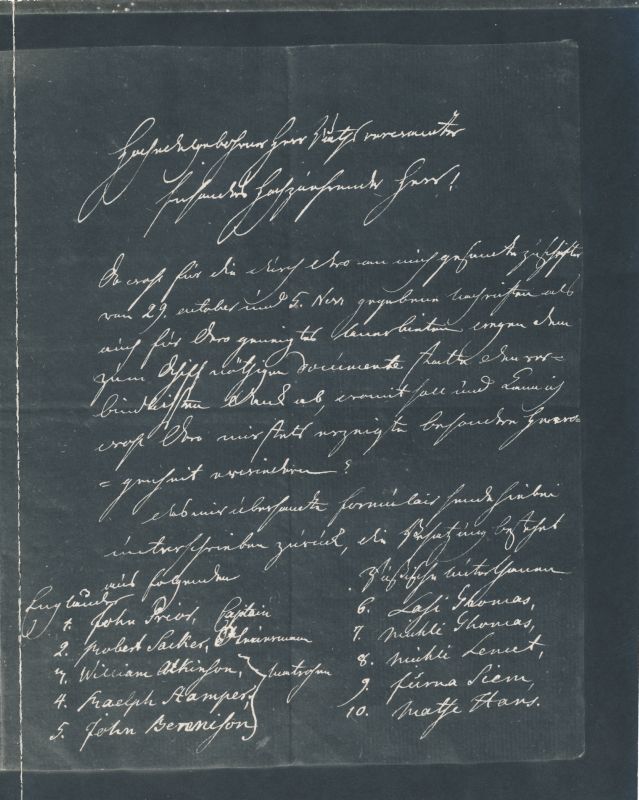 Hochedelgebohrner Herr
besonders Hochzuehrender Herr!
So wohl für die durch Dero an mich gesandte
vom 29 october und 5. Nov gegebene nachrichten als
auch für Dero geneigtes anerbieten wegen dem
zum Schiff nöthigen documente statte den ver=
bindlichsten Dank ab, womit soll und kann ich
wohl Dero mir stets erzeigte besondere Gewo=
=genheit erwiedern?
das mir übersandte formulair sende hiebei
unterschrieben zurück, die Besatzung besteht
aus folgenden
Engländer
1. John Prior, Captain
2. Robert Sacker, Steuermann
3. William Atkinson,
4. Raelph Stamper,
5. John Berenison
matrosen
Russische unterthanen
6. Lasi Thomas,
7. Michli Thomas,
8. Michli Lemet,
9. Fürna Siem,
10. Matse Hans.